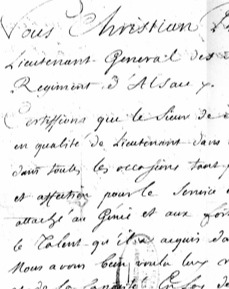 Nous Christian
Lieutenant General des
Regiment d'Alsace
Certiffions que le Sieur de
en qualité de Lieutenant dans
dans toutes les occasions tant
et affection pour le Service
attaché au Génie et aux
le Talent qu'il a acquis da
Nous avons bien voulu lux
et de la